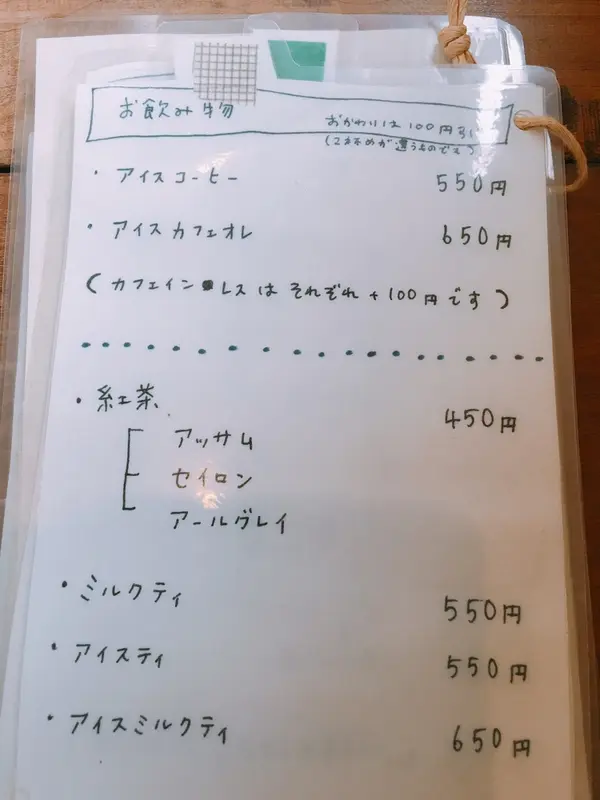 お飲み物
おかわりは100円引
(2杯めが違うものでも)
・アイスコーヒー 550円
・アイスカフェオレ 650円
(カフェインレスはそれぞれ+100円です)
・紅茶 450円
アッサム
セイロン
アールグレイ
・ミルクティ 550円
・アイスティ 550円
・アイスミルクティ 650円